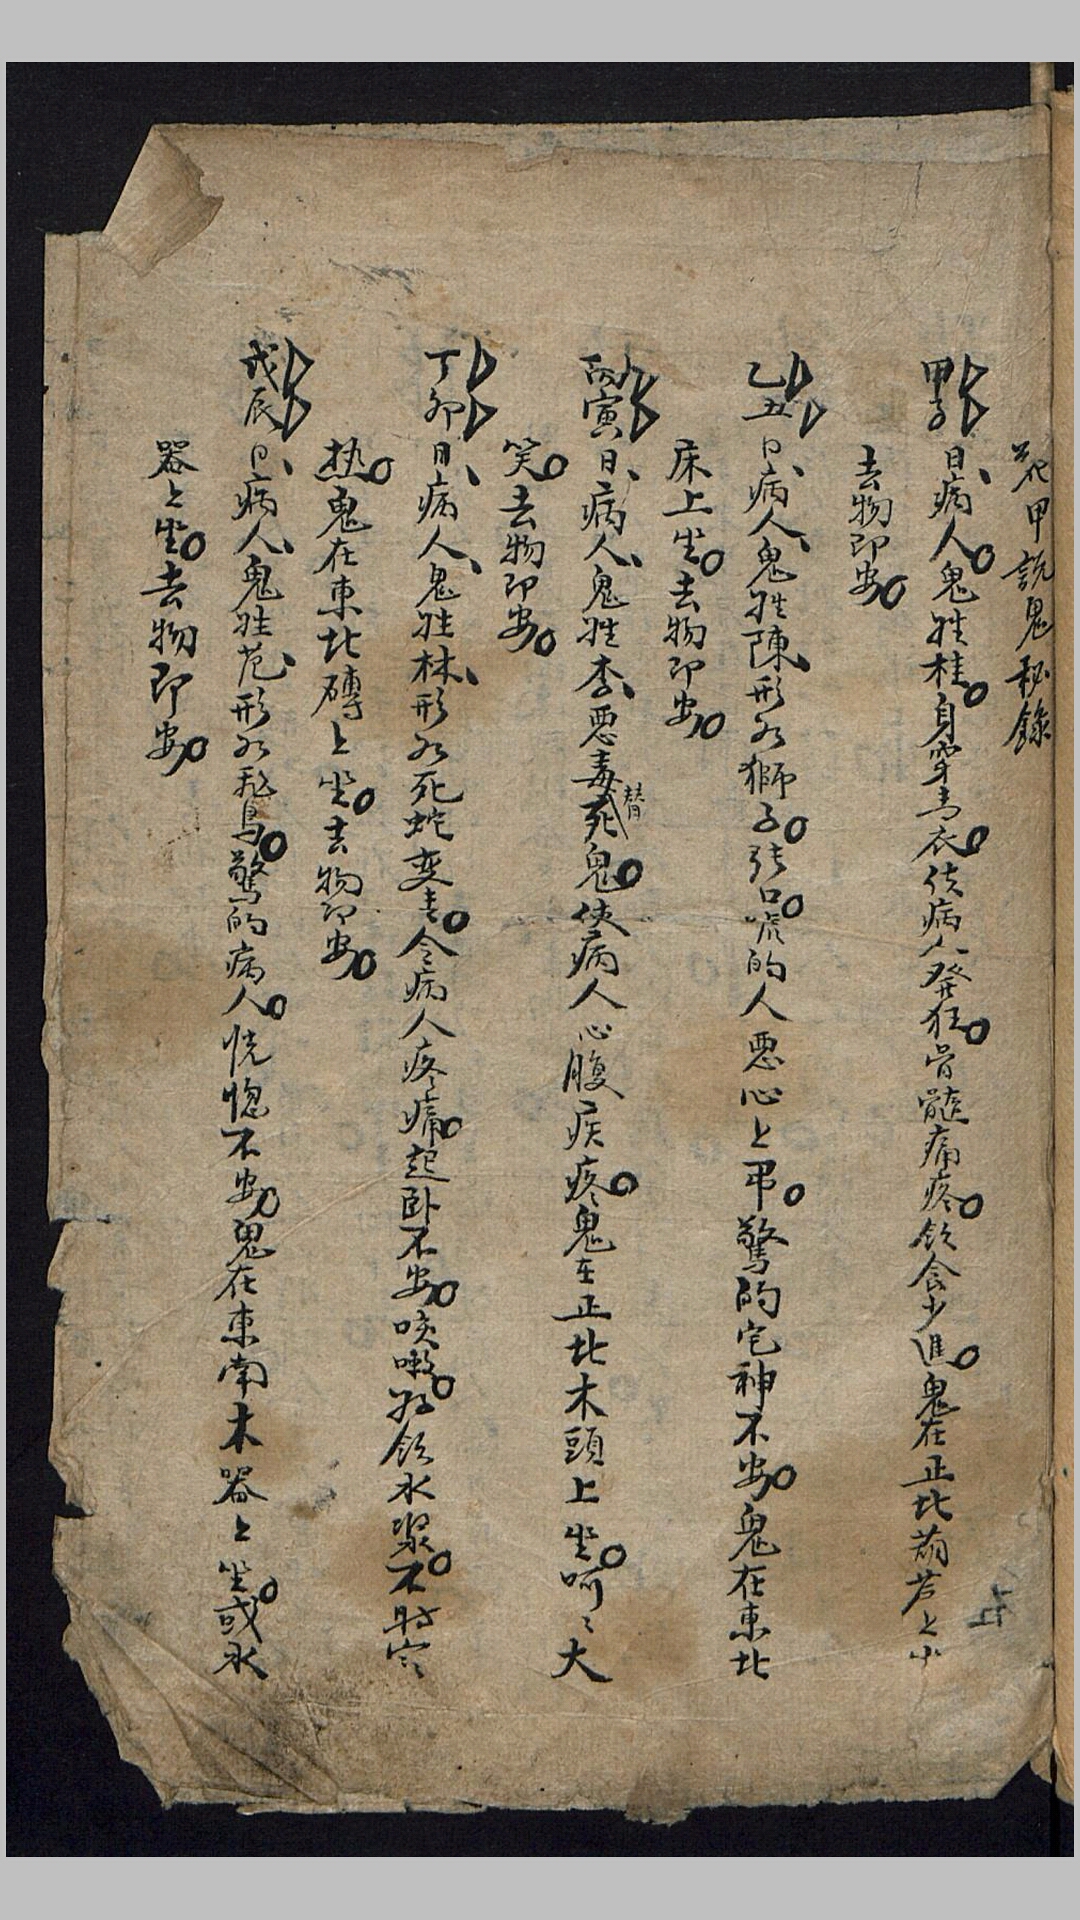 花甲説鬼秘錄
甲子日病人鬼姓桂身穿青衣使病人發狂骨髓痛疼飲食少進鬼在正北葫芦上坐
去物即安
乙丑日病人鬼姓陳形如獅子張口唬的人惡心上吊驚的宅神不安鬼在東北
床上坐去物即安
丙寅日病人鬼姓李惡毒死替鬼使病人心腹疾疼鬼在正北木頭上坐呵〻大
笑去物即安
丁卯日病人鬼姓林形如死蛇变青令病人疼痛起卧不安咳嗽好飲水漿不時寒
热鬼在東北磚上坐去物即安
戊辰日病人鬼姓范形如飛鳥驚的病人恍惚不安鬼在東南木器上坐或水
器上坐去物即安